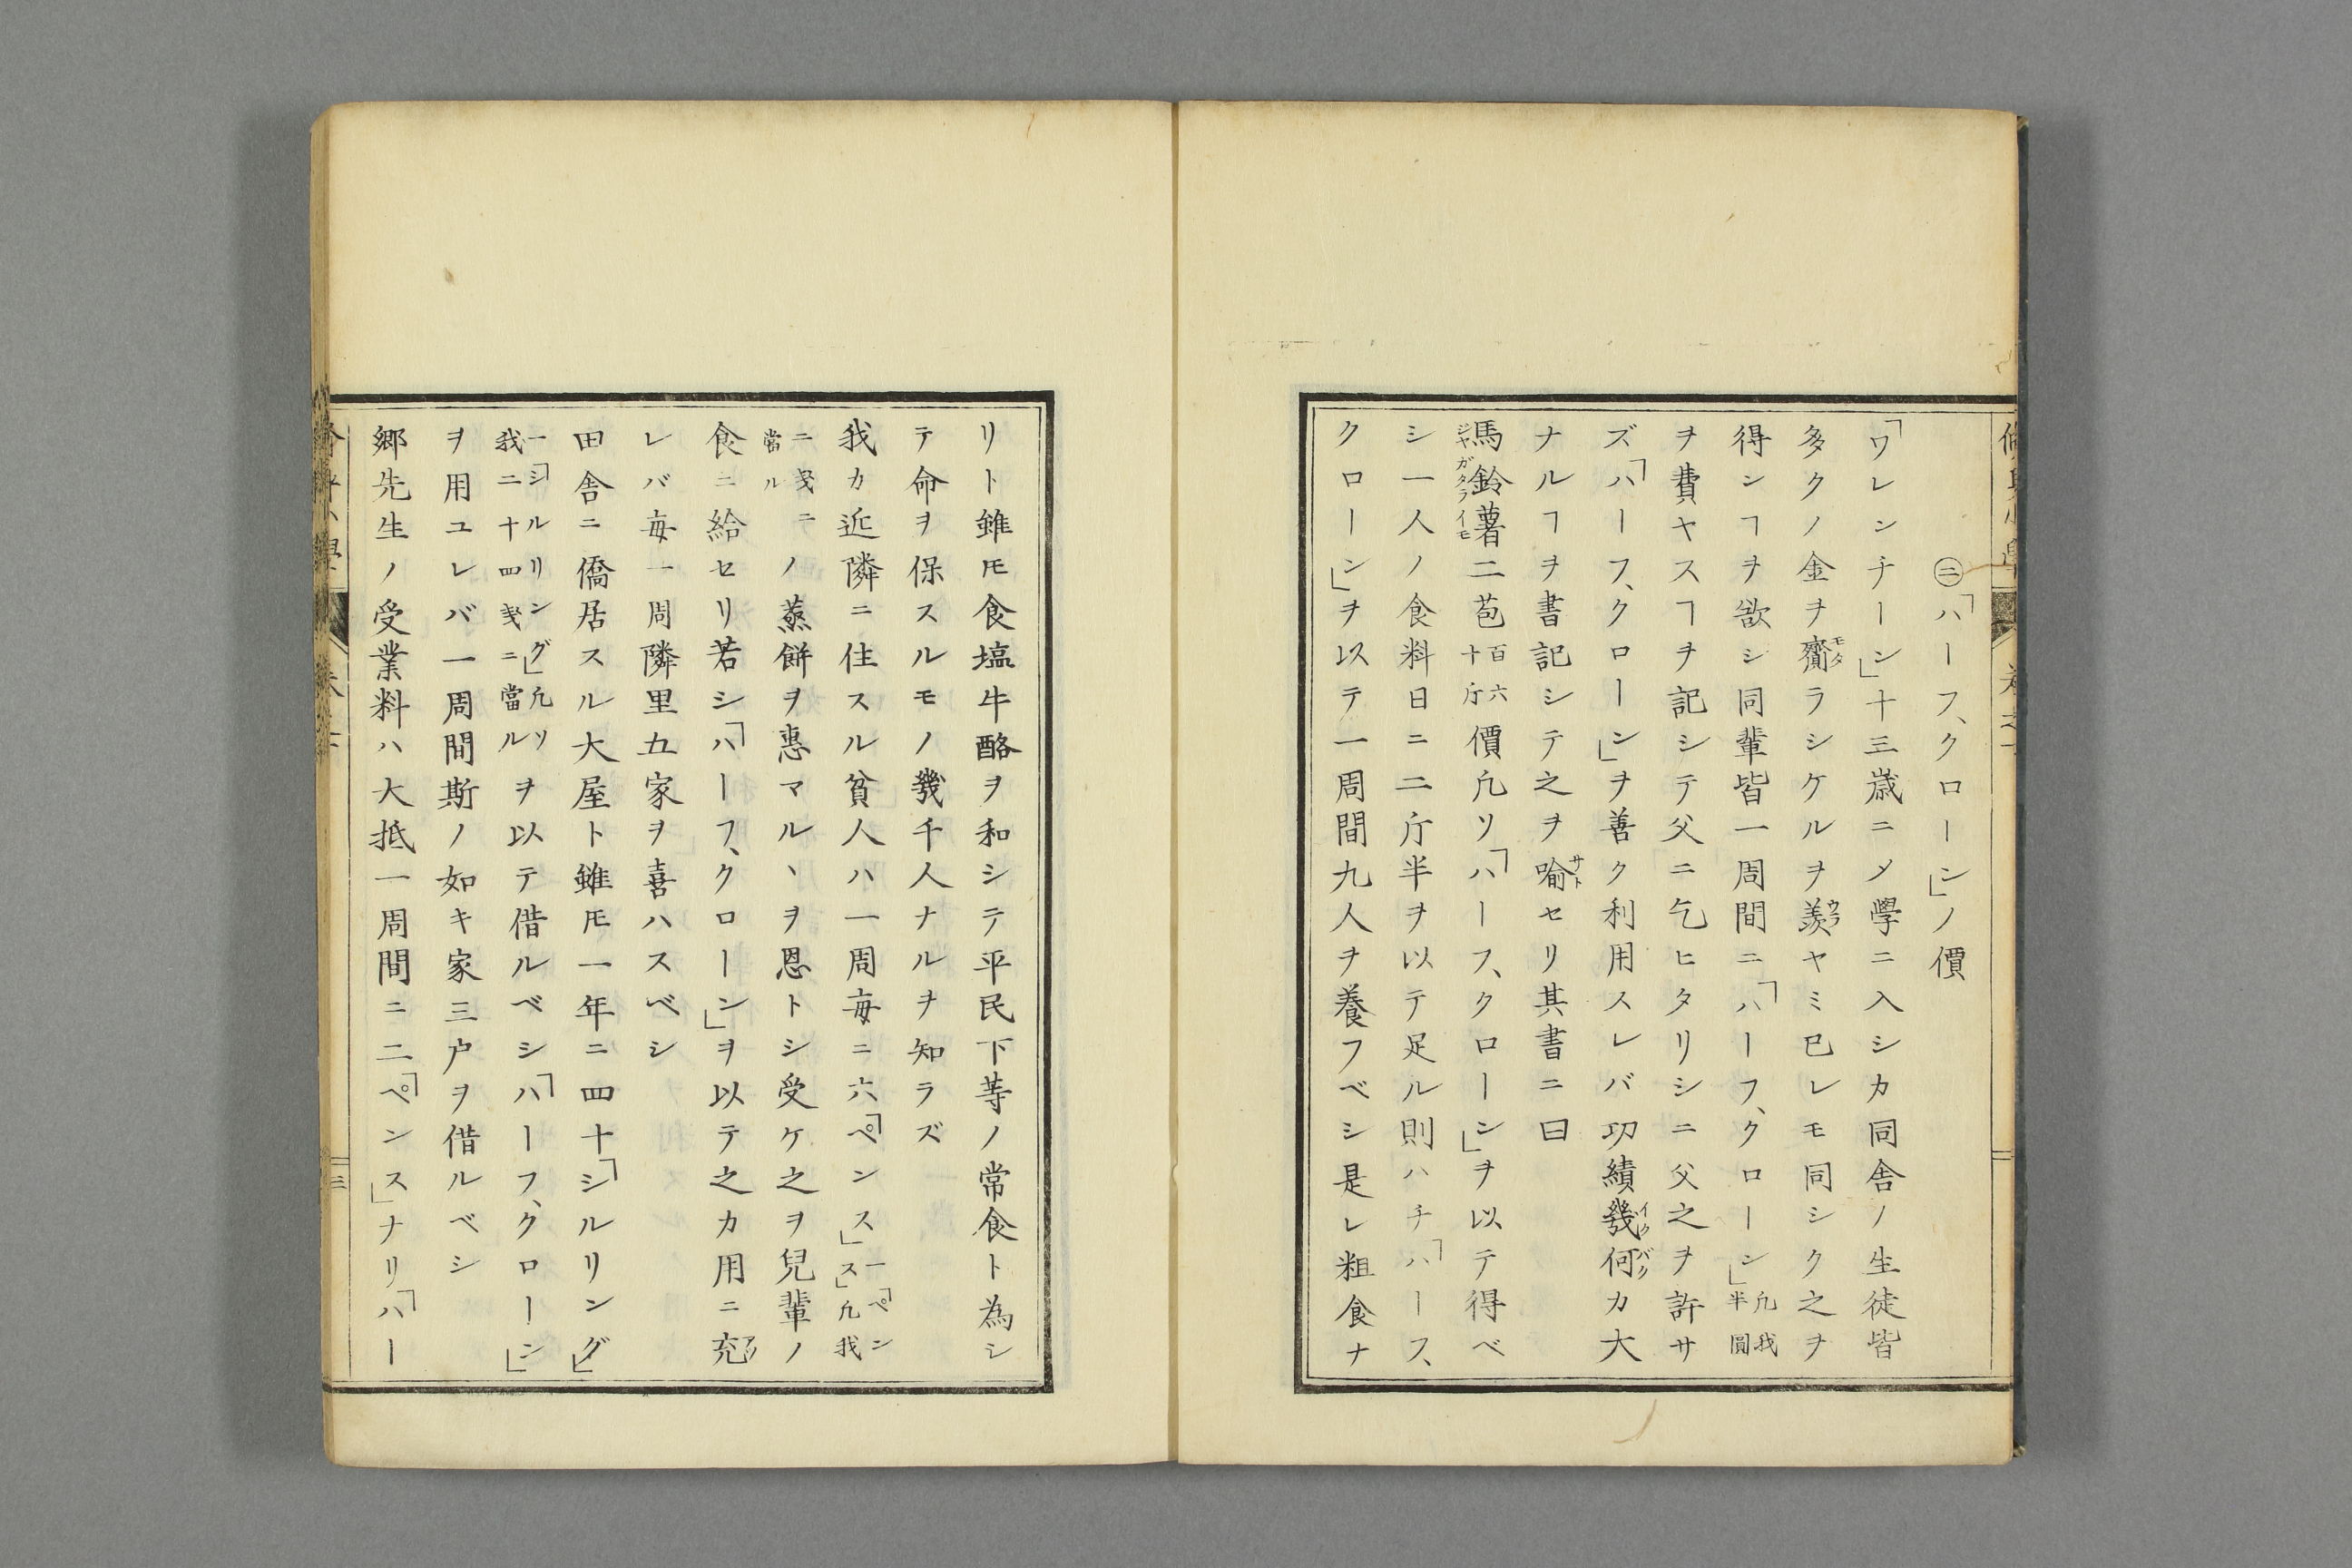 ㊁「ハーフ、クローン」ノ價
「ワレンチーン」十三歳ニメ學ニ入シカ同舎ノ生徒皆
多クノ金ヲ齎モタラシケルヲ羨ウラヤミ已レモ同シク之ヲ
得ンヿヲ欲シ同輩皆一周間ニ「ハーフ、クローン」凢我半圓
ヲ費ヤスヿヲ記シテ父ニ乞ヒタリシニ父之ヲ許サ
ズ「ハーフ、クローン」ヲ善ク利用スレバ功績幾何イクバクカ大
ナルヿヲ書記シテ之ヲ喩サトセリ其書ニ曰
馬鈴薯ジヤガタライモ二苞百六十斤價凢ソ「ハーフ、クローン」ヲ以テ得ベ
シ一人ノ食料日ニ二斤半ヲ以テ足ル則ハチ「ハーフ、
クローン」ヲ以テ一周間九人ヲ養フベシ是レ粗食ナ
リト雖𪜈食塩牛酪ヲ和シテ平民下等ノ常食ト為シ
テ命ヲ保スルモノ幾千人ナルヲ知ラズ
我カ近隣ニ住スル貧人ハ一周毎ニ六「ペンス」一「ペンス」凢我
二戔ニ當ルノ蒸餅ヲ惠マルヽヲ恩トシ受ケ之ヲ兒輩ノ
食ニ給セリ若シ「ハーフ、クローン」ヲ以テ之カ用ニ充アツ
レバ毎一周隣里五家ヲ喜ハスベシ
田舎ニ僑居スル大屋ト雖𪜈一年ニ四十「シルリング」
一「シルリング」凢ソ我二十四戔ニ當ルヲ以テ借ルベシ「ハーフ、クローン」
ヲ用ユレバ一周間斯ノ如キ家三戸ヲ借ルベシ
郷先生ノ受業料ハ大抵一周間ニ二「ペンス」ナリ「ハー
三